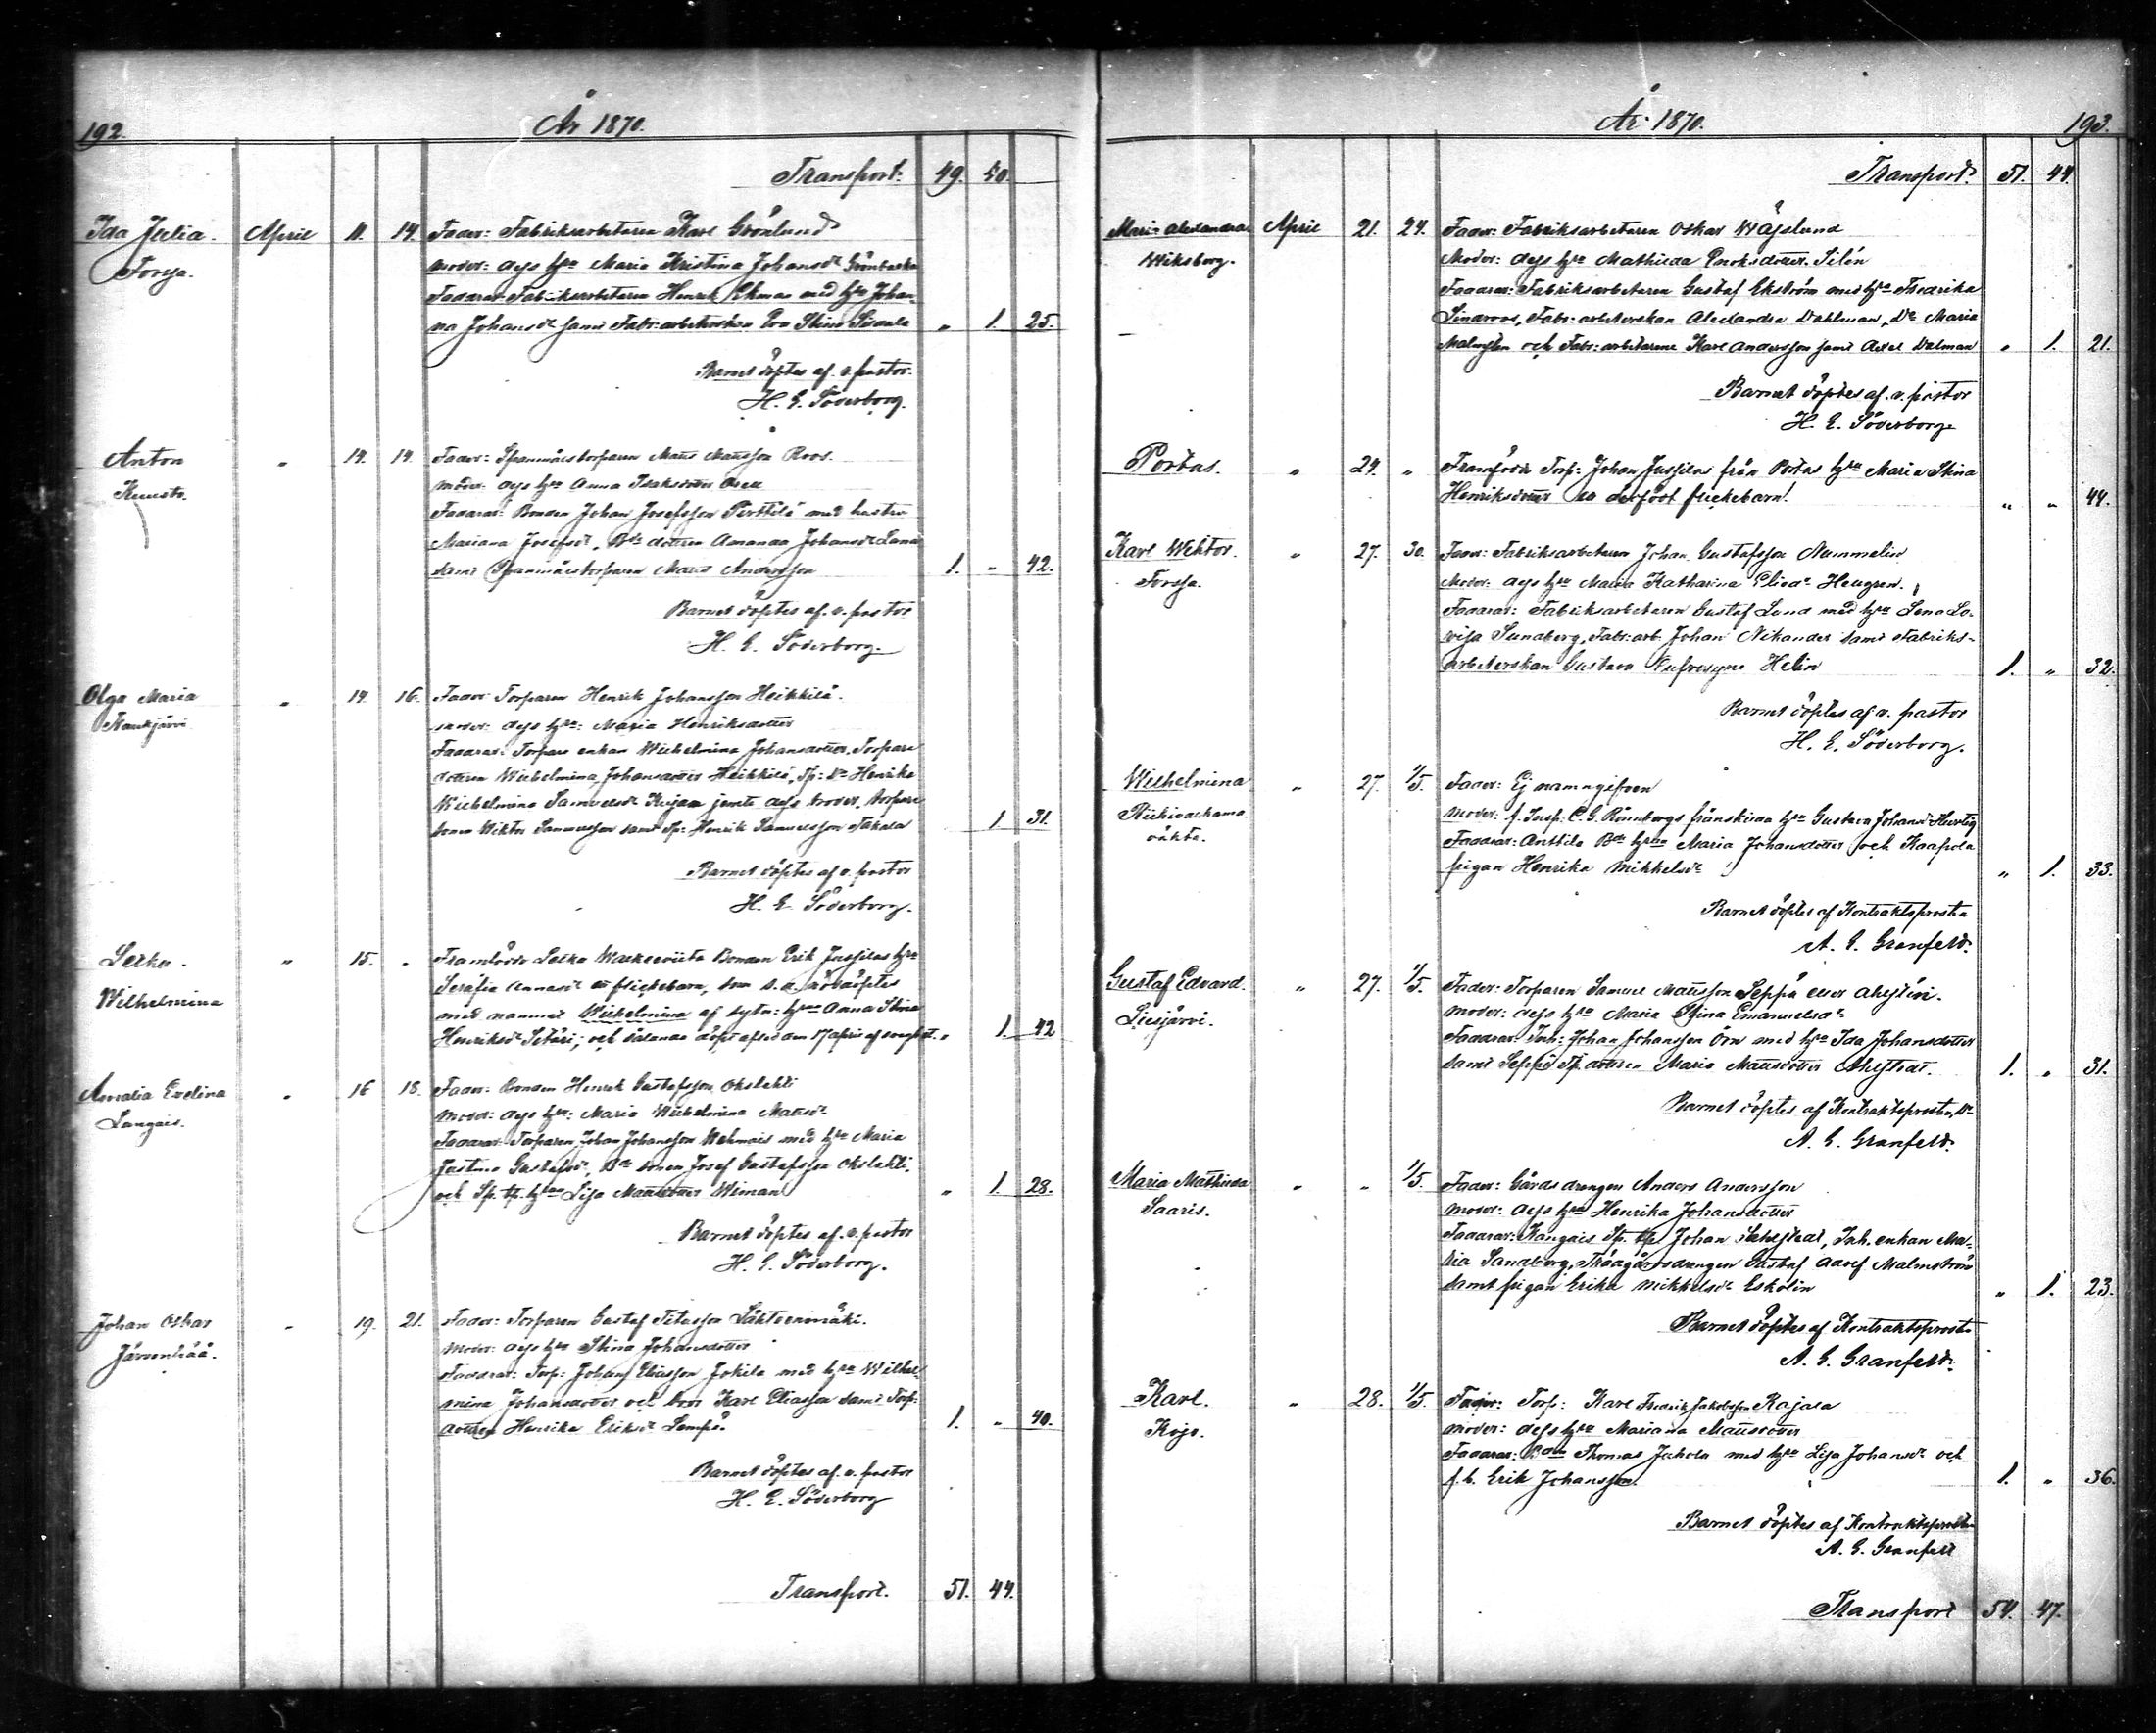 192.
År 1870.
Transport. 49. 40.
Ida Julia. April 11. 14. Fader: Fabriksarbetaren Karl Grönlund
Forssa. Moder: dess h:ru Maria Kristina Johansdr
Faddrar: Fabriksarbetaren Henrik Ekman med h:ru Johan-
na Johansdr samt Fabr:arbeterskan Eva Stina „ 1. 25.
Barnet döptes af v. pastor
H. E. Söderborg.
Anton „ 14. 14. Fader: Spannmålstorparen Matts Mattsson Roos.
Moder: dess h:ru Anna Isaksdotter
Faddrar: Bonden Johan Josefsson Perttilä med hustru
Mariana Josefsdr, Bde dottren Amanda Johansdr
samt Spannmålstorparen Andersson 1. „ 42.
Barnet döptes af v. pastor
H. E. Söderborg.
Olga Maria „ 14. 16. Fader: Torparen Henrik Johansson Heikkilä.
Kaukjärvi moder: dess h:ru: Maria Henriksdotter
Faddrar: Torpare enkan Wilhelmina Johansdotter, Torpare
dottren Wilhelmina Johansdotter Heikkilä, Tp: Dr Henrika
Wilhelmina Samuelsdr Kujan jemte dess broder, torpare
sonen Wiktor Samuelsson samt Tp: Henrik Samuelsson Takala 1 31.
Barnet döptes af v. pastor
H. E. Söderborg.
„ 15. „ Framfödde Bonden Erik Jussilas h:ru
Wilhelmina Serafia Annasdr ett flickebarn, som s. d. nöddöptes
med namnet Wilhelmina af sytn: h:ru Anna Stina
Henriksdr Setäri; och sålunda döpt afled den 17 april af „ 1. 42
Amalia Evelina „ 16 18. Fader: Bonden Henrik Gustafsson Okslahti
Langais. Moder: dess h:ru: Maria Wilhelmina Mattsdr
Faddrar: Torparen Johan Johansson Wehmais med h:ru Maria
Justina Gustafsdr, Bde sonen Josef Gustafsson Okslahti,
och Sp. tp. h:run Lisa Mattsdotter Wiman „ 1 28.
Barnet döptes af v. pastor
H. E. Söderborg.
Johan Oskar „ 19. 21. Fader: Torparen Gustaf Titusson Lähteenmäki.
Järvenpää. Moder: dess h:ru Stina Johansdotter
Faddrar: Torp: Johan Eliasson Jokila med h:ru Wilhel-
mina Johansdotter och bror Karl Eliasson samt Torp:
dottren Henrika Eriksdr 1. „ 40.
Barnet döptes af v. pastor
H. E. Söderborg
Transport. 51. 44.
År 1870.
193.
Transport. 51. 44.
Maria Alexandra April 21. 24. Fader: Fabriksarbetaren Oskar Wäglund
Wiksborg. Moder: dess h:ru Mathilda Enoksdotter Silén
Faddrar: Fabriksarbetaren Gustaf Ekström med h:ru Fredrika
Lindroos, Fabr:arbeterskan Alexandra Dahlman, Dr Maria
Malmsten och Fabr:arbetarene Karl Andersson samt Axel Dalman „ 1. 21.
Barnet döptes af v. pastor
H. E. Söderborg
Portas. „ 24. „ Framfödde Torp: Johan Jussilas från Portas h:ru Maria Stina
Henriksdotter ett dödfödt flickebarn! „ „ 44.
Karl Wiktor. „ 27. 30. Fader: Fabriksarbetaren Johan Gustafsson Nummelin
Forssa. Moder: dess h:ru Maria Katharina Eliedr Hengren.
Faddrar: Fabriksarbetaren Gustaf Lund med h:ru Lena Lo-
visa Sundberg, Fabr:arb. Johan Nikander samt Fabriks-
arbeterskan Gustava Eufrosyne Helin 1. „ 32.
Barnet döptes af v. pastor
H. E. Söderborg.
Wilhelmina „ 27. 1/5. Fader: Ej namngifven
Moder: f. Insp: C. G. Rönnbergs frånskilda h:ru Gustava Johansdr Hertig
Faddrar: Anttila Bde h:run Maria Johansdotter och Kaapola
pigan Henrika Mikkelsdr „ 1. 33.
Barnet döptes af Kontraktsprosten
A. E. Granfelt.
Gustaf Edvard. „ 27. 1/5. Fader: Torparen Samuel Mattsson Seppä eller Ahlstén.
Liesjärvi. Moder: dess h:ru Maria Stina Emanuelsdr
Faddrar: Inh: Johan Johansson Örn med h:ru Ida Johansdotter
samt Seppä Tp. dottren Maria Mattsdotter 1. „ 31.
Barnet döptes af Kontraktsprosten, Dr
A. E. Granfelt.
Maria Mathilda „ „ 1/5. Fader: Gårdsdrängen Anders Andersson
Saaris. Moder: dess h:ru Henrika Johansdotter
Faddrar: Kangais Sp. tp. Johan Inh. enkan Ma-
ria Sandberg, Trädgårdsdrängen Gustaf Adolf Malmström
samt pigan Erika Mikkelsdr Eskolin „ 1. 23.
Barnet döptes af Kontraktsprosten
A. E. Granfelt.
Karl. „ 28. 1/5. Fader: Torp: Karl Fredrik Jakobsson Rajala
Kojo. Moder: dess h:ru Mariana Mattsdotter
Faddrar: Bden Thomas Jukola med h:ru Lisa Johansdr och
f. b. Erik Johansson. 1. „ 36.
Barnet döptes af Kontraktsprosten
A. E. Granfelt
Transport 54. 47.